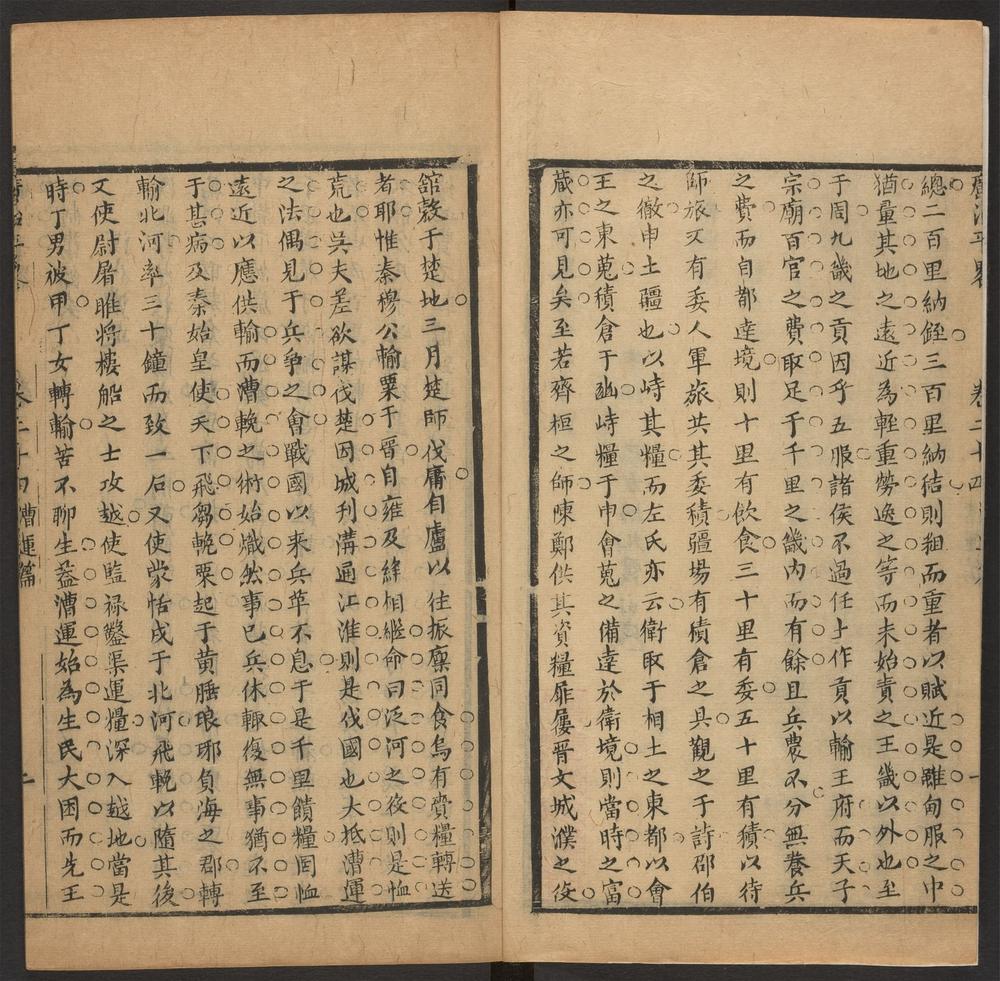 廣治平畧 卷三十四 一
總二百里納銍三百里納秸則粗而重者以賦近是雖甸服之中
猶量其地之遠近為輕重勞逸之等而未始責之王畿以外也至
于周九畿之貢因乎五服諸侯不過任土作貢以輸王府而天子
宗廟百官之費取足于千里之畿内而有餘且兵農不分無養兵
之費而自都達境則十里有飲食三十里有委五十里有積以待
師旅又有委人軍旅共其委積疆場有積倉之具觀之于詩邵伯
之徹申土疆也以峙其糧而左氏亦云衛取于相土之東都以會
王之東蒐積倉于豳峙糧于申會蒐之備達於衛境則當時之富
蔵亦可見矣至若齊桓之師陳鄭供其資糧屝屨晋文城濮之役
舘榖于楚地三月楚師伐庸自廬以往振廩同食烏有賫糧轉送
者耶惟秦穆公輸粟于晋自雍及絳相繼命曰泛河之役則是恤
荒也吳夫差欲謀伐楚因城刋溝通江淮則是伐國也大抵漕運
之法偶見于兵争之會戰國以来兵革不息于是千里饋糧罔恤
遠近以應供輸而漕輓之術始熾然事已兵休輙復無事猶不至
于甚病及秦始皇使天下飛芻輓粟起于黄腄琅琊負海之郡轉
輸北河率三十鐘而致一石又使蒙恬戍于北河飛輓以隨其後
又使尉屠睢將樓船之士攻越使監禄鑿渠運糧深入越地當是
時丁男被甲丁女轉輸苦不聊生葢漕運始為生民大困而先王
卷三十四漕運篇 二